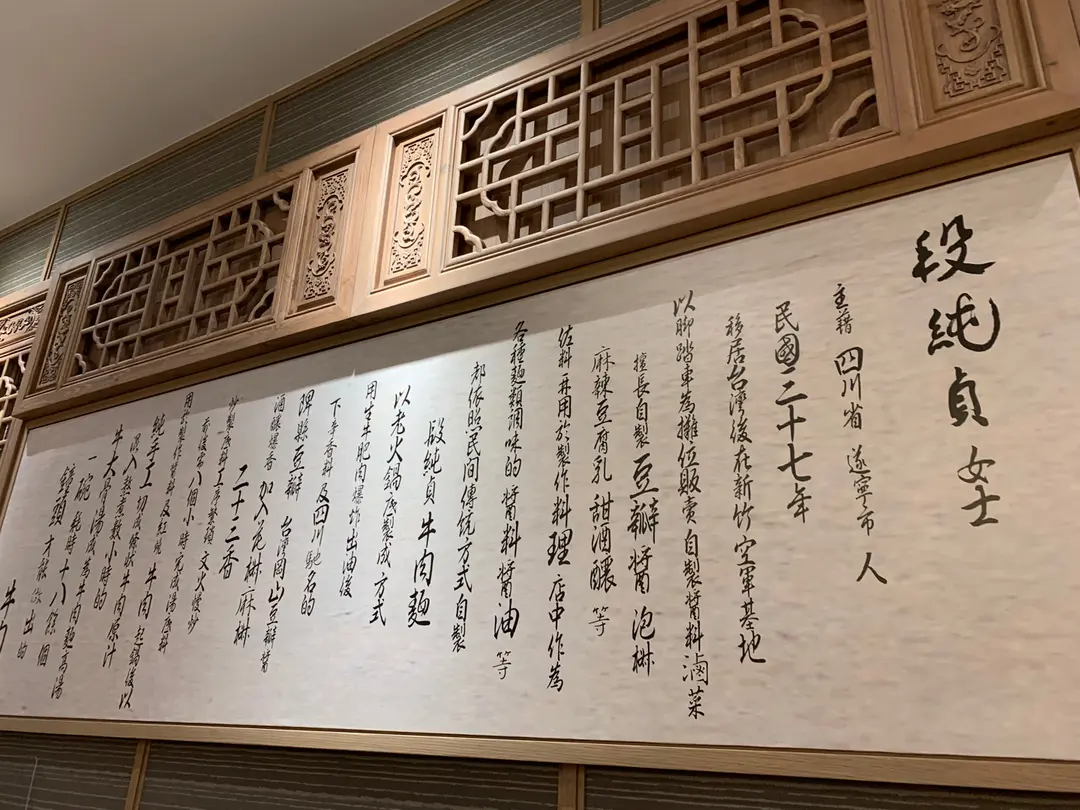 段純貞女士
主籍四川省遂寧市人
民國二十七年
移居台灣後在新竹空軍基地
以脚踏車為攤位販賣自製醬料滷菜
擅長自製豆瓣醬泡椒
麻辣豆腐乳甜酒釀等
佐料再用於製作料理店中作為
各種麵類調味的醬料醬油等
都依照民間傳統方式自製
段純貞牛肉麵
以老火鍋底製成方式
用生牛肥肉爆炸出油後
下辛香料及四川馳名的
郫縣豆瓣台灣岡山豆瓣醬
酒釀爆香加入花椒麻椒
二十三香
炒製底料工序繁瑣文火慢炒
八個小時完成湯底料
純手工切成條狀牛肉起鍋後以
牛大骨湯底為牛肉麵高湯
一碗純時十八餘個
鐘頭才能作出的
牛肉